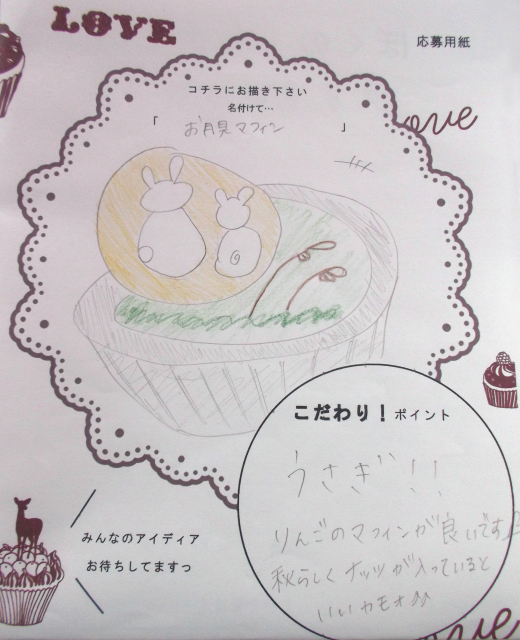 LOVE
応募用紙
コチラにお描き下さい
名付けて…
「お月見マフィン」
ove
こだわり!ポイント
うさぎ!!
りんごのマフィンが良いです
秋らしくナッツが入っていると
いいカモォ♪♪
みんなのアイディア
お待ちしてますっ
ove